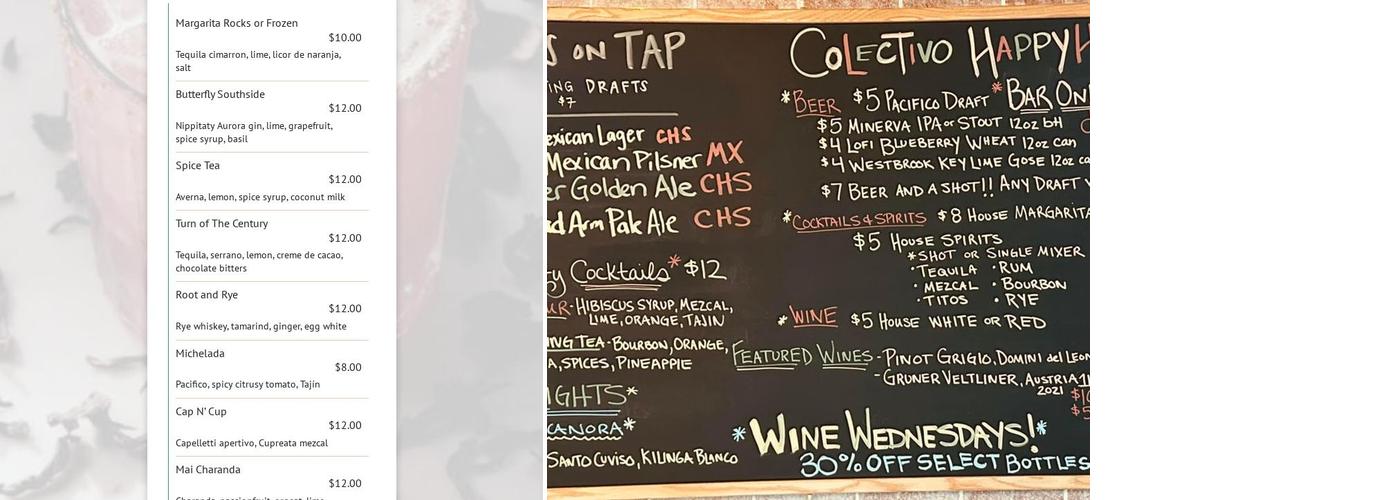 Margarita Rocks or Frozen
$10.00
Tequila cimarron, lime, licor de naranja,
salt
Butterfly Southside
$12.00
Nippitaty Aurora gin, lime, grapefruit,
spice syrup, basil
Spice Tea
$12.00
Averna, lemon, spice syrup, coconut milk
Turn of The Century
$12.00
Tequila, serrano, lemon, creme de cacao,
chocolate bitters
Root and Rye
$12.00
Rye whiskey, tamarind, ginger, egg white
Michelada
$8.00
Pacifico, spicy citrusy tomato, Tajin
Cap N' Cup
$12.00
Capelletti apertivo, Cupreata mezcal
Mai Charanda
$12.00
S ON TAP
ING DRAFTS
$7
exican Lager CHS
Mexican Pilsner MX
er Golden Ale CHS
ad Arm Pale Ale CHS
y Cocktails* $12
UR - HIBISCUS SYRUP, MEZCAL,
LIME, ORANGE, TAJIN
ING TEA - BOURBON, ORANGE,
A, SPICES, PINEAPPLE
IGHTS*
CANORA*
SANTO CUVISO, KILINGA BLANCO
COLECTIVO HAPPY H
*BEER $5 PACIFICO DRAFT *BAR ON
$5 MINERVA IPA or STOUT 12oz btl
$4 LOFI BLUEBERRY WHEAT 12oz can
$4 WESTBROOK KEY LIME GOSE 12oz ca
$7 BEER AND A SHOT!! ANY DRAFT
*COCKTAILS & SPIRITS $8 HOUSE MARGARITA
$5 HOUSE SPIRITS
*SHOT OR SINGLE MIXER
·TEQUILA ·RUM
·MEZCAL ·BOURBON
·TITOS ·RYE
*WINE $5 HOUSE WHITE OR RED
FEATURED WINES - PINOT GRIGIO, DOMINI del LEON
- GRUNER VELTLINER, AUSTRIA
2021
*WINE WEDNESDAYS!*
30% OFF SELECT BOTTLES